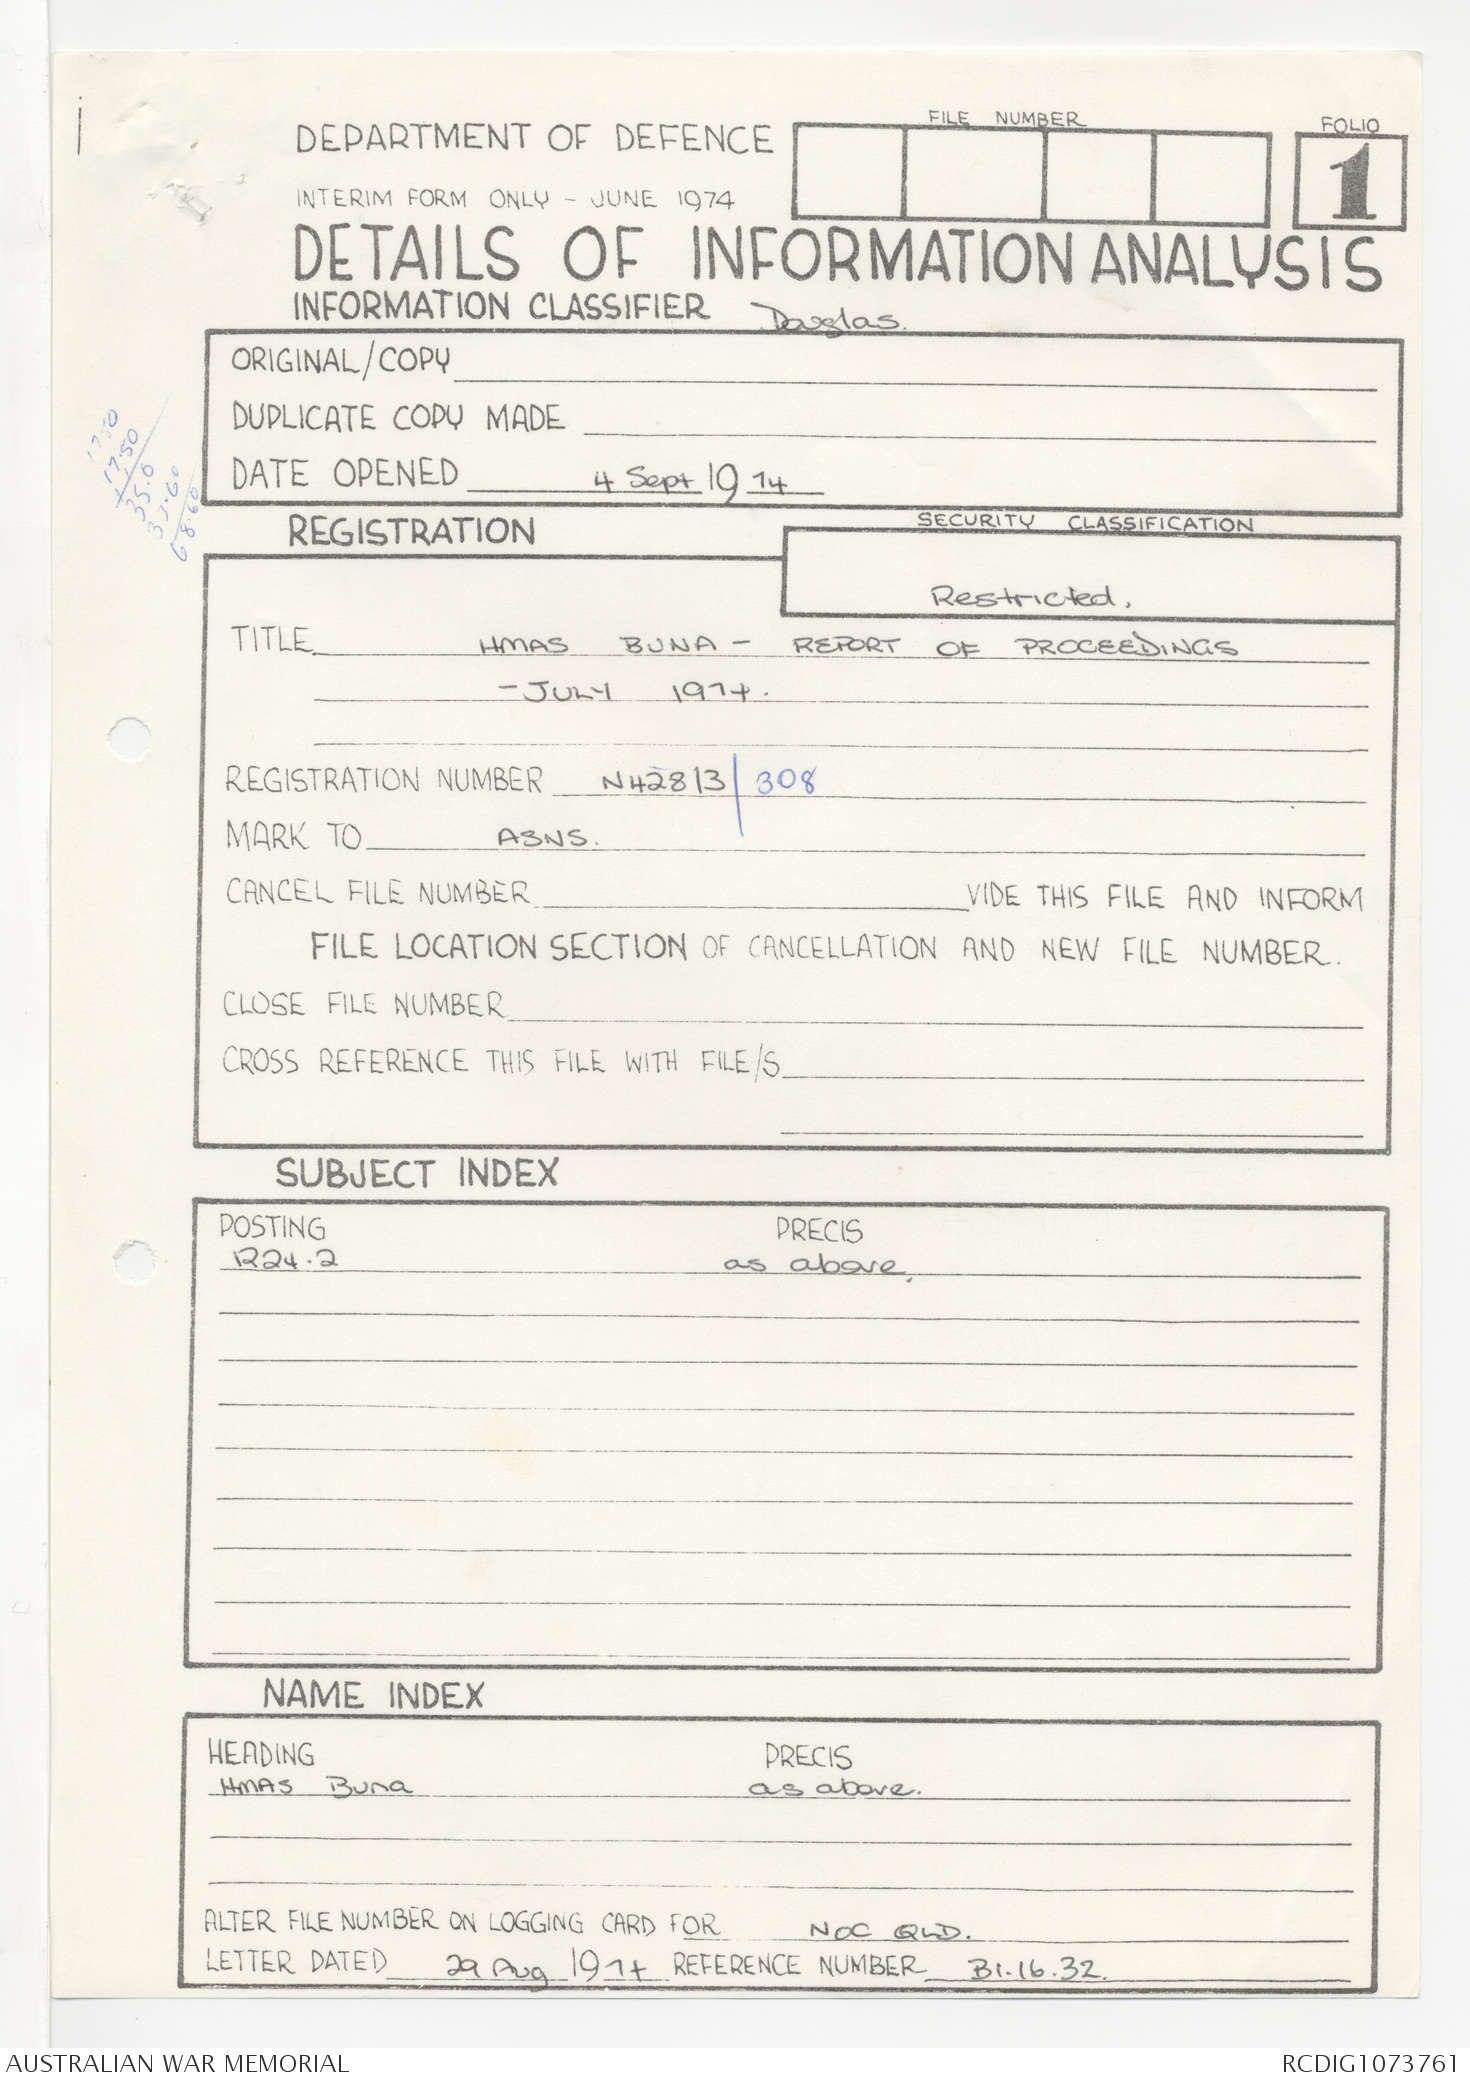 DEPARTMENT OF DEFENCE
FILE NUMBER
FOLIO
1
INTERIM FORM ONLY - JUNE 1974
DETAILS OF INFORMATION ANALYSIS
INFORMATION CLASSIFIER Douglas.
ORIGINAL/COPY
DUPLICATE COPY MADE
DATE OPENED 4 Sept 1974
17.50
17.50
35.0
33.60
68.60
REGISTRATION
SECURITY CLASSIFICATION
Restricted.
TITLE HMAS BUNA - REPORT OF PROCEEDINGS
- JULY 1974.
REGISTRATION NUMBER N428/3/308
MARK TO ASNS.
CANCEL FILE NUMBER VIDE THIS FILE AND INFORM
FILE LOCATION SECTION OF CANCELLATION AND NEW FILE NUMBER.
CLOSE FILE NUMBER
CROSS REFERENCE THIS FILE WITH FILE/S
SUBJECT INDEX
POSTING PRECIS
1224.2 as above,
NAME INDEX
HEADING PRECIS
HMAS Buna as above.
ALTER FILE NUMBER ON LOGGING CARD FOR NOC QLD.
LETTER DATED 29 Aug 1974 REFERENCE NUMBER B1.16.32.
AUSTRALIAN WAR MEMORIAL
RCDIG1073761